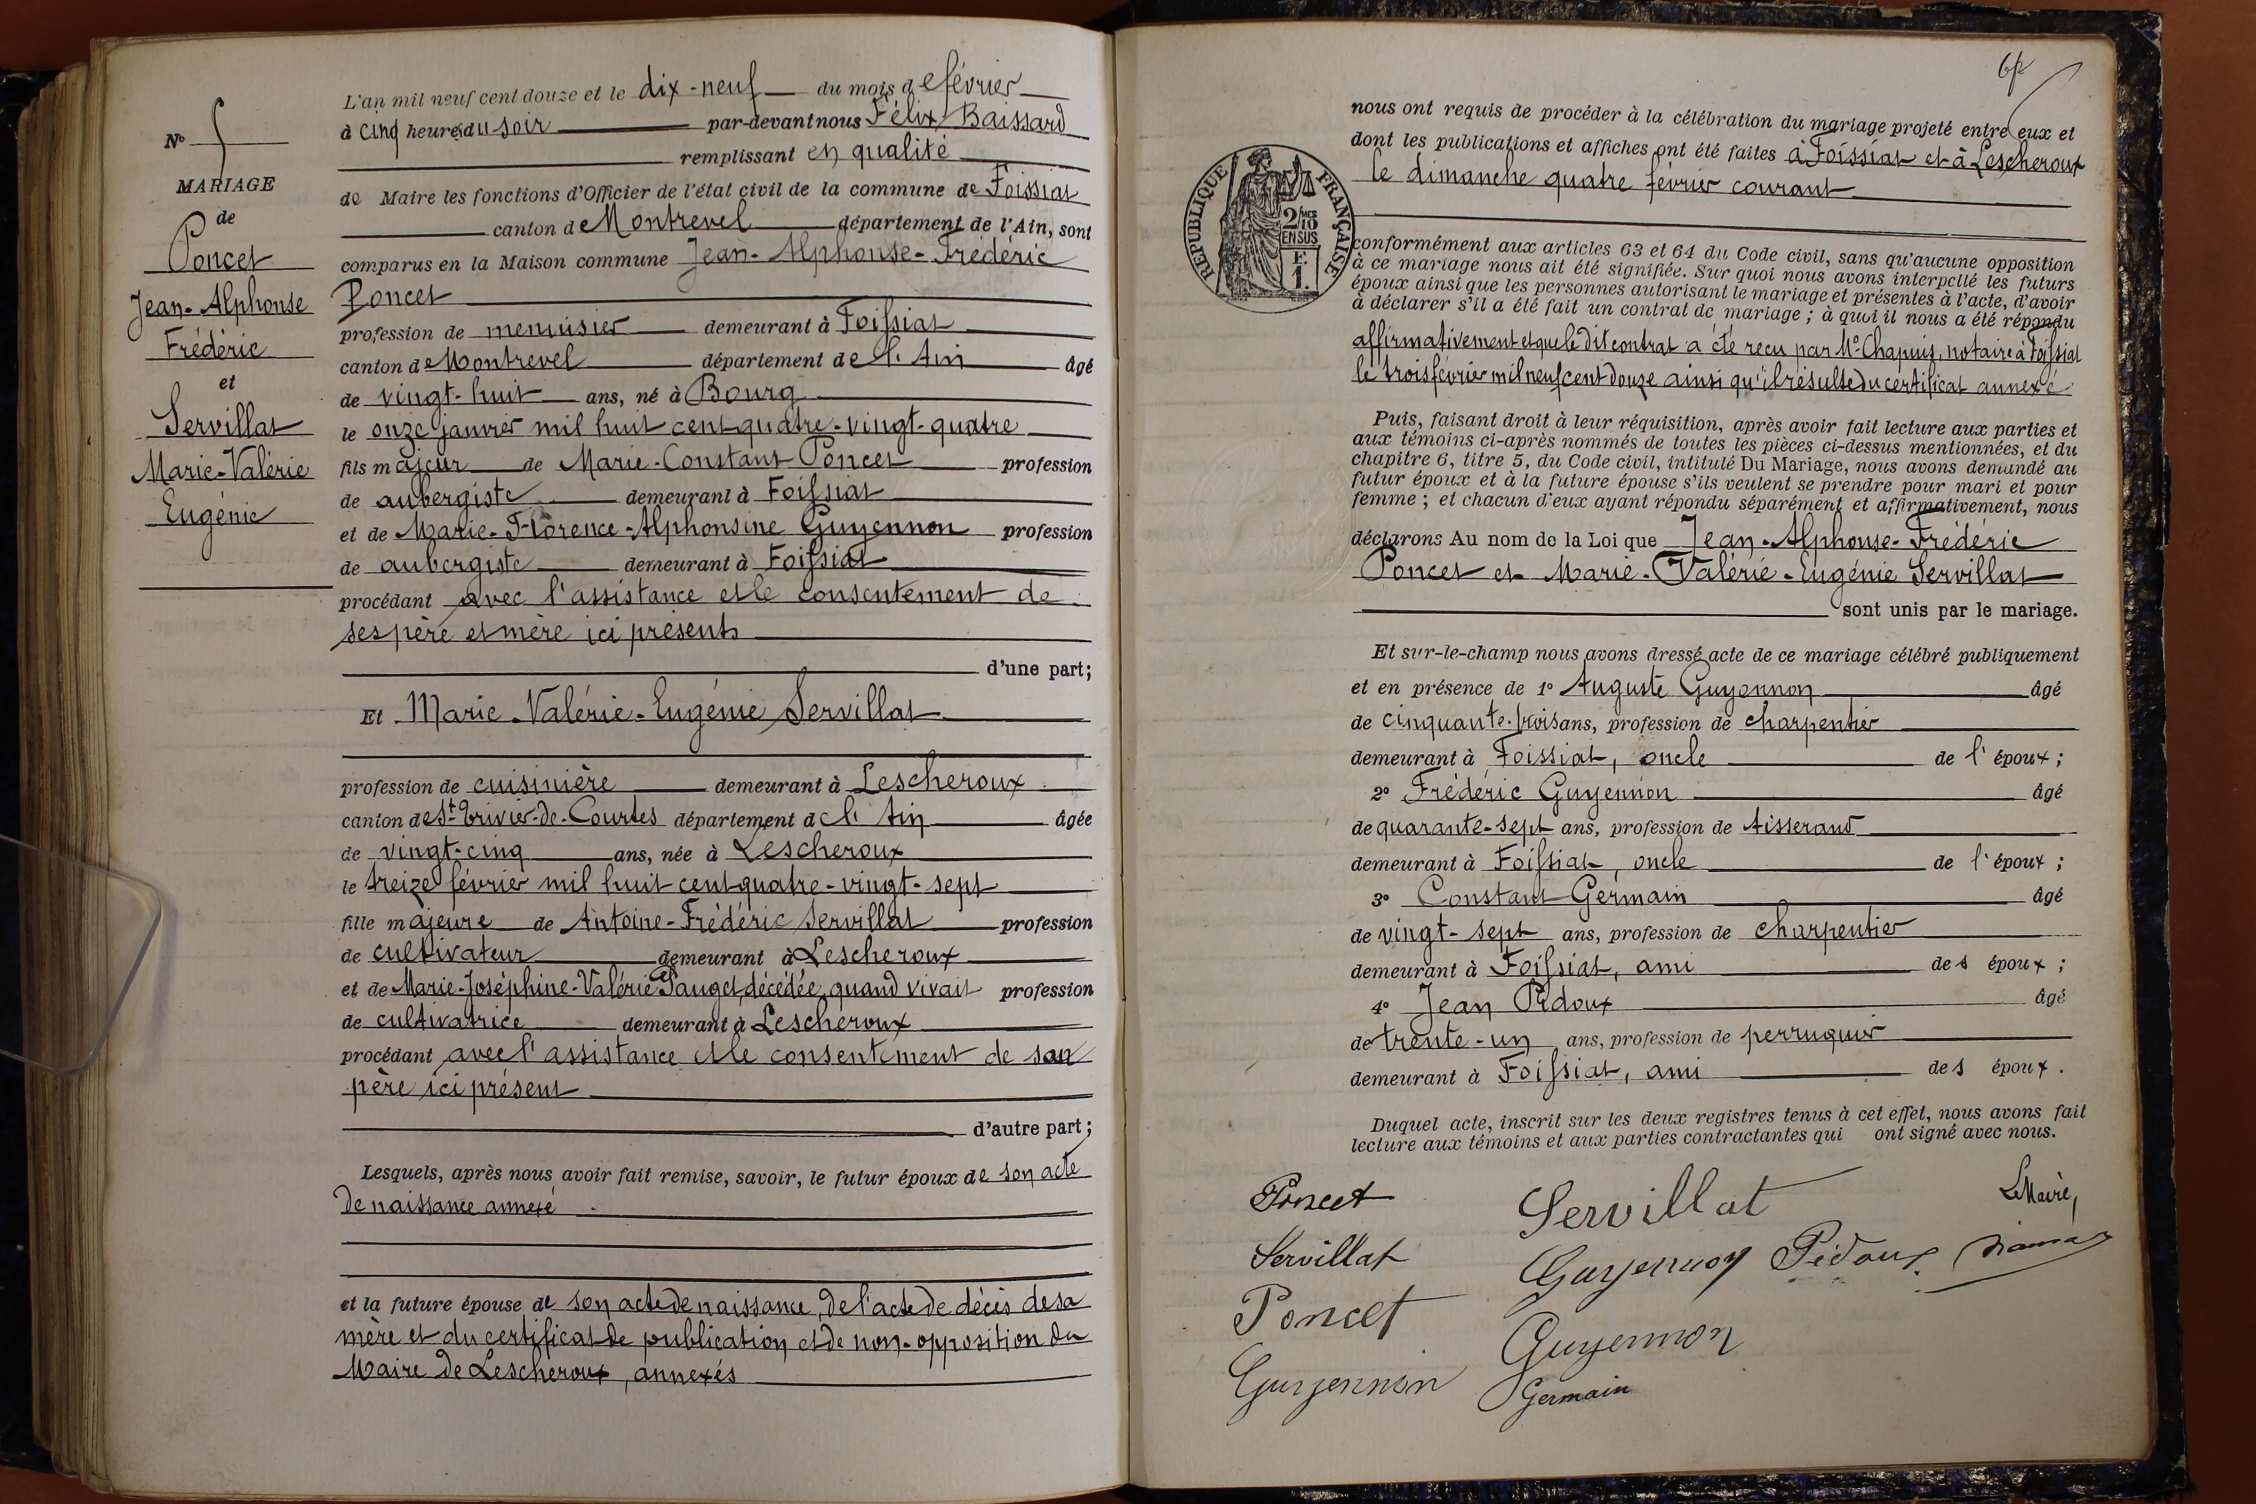 N° 5
MARIAGE
de
Poncet
Jean-Alphonse
Frédéric
et
Servillat
Marie-Valérie
Eugénie
L'an mil neuf cent douze et le dix-neuf du mois de février
à cinq heures du soir par-devant nous Félix Baissard
remplissant en qualité
de Maire les fonctions d'Officier de l'état civil de la commune de Foissiat
canton de Montrevel département de l'Ain, sont
comparus en la Maison commune Jean-Alphonse-Frédéric
Poncet
profession de menuisier demeurant à Foissiat
canton de Montrevel département de l'Ain âgé
de vingt-huit ans, né à Bourg
le onze janvier mil huit cent quatre-vingt-quatre
fils majeur de Marie-Constant Poncet profession
de aubergiste demeurant à Foissiat
et de Marie-Florence-Alphonsine Guyennon profession
de aubergiste demeurant à Foissiat
procédant avec l'assistance et le consentement de
ses père et mère ici présents
d'une part;
Et Marie-Valérie-Eugénie Servillat
profession de cuisinière demeurant à Lescheroux
canton de St-Trivier-de-Courtes département de l'Ain âgée
de vingt-cinq ans, née à Lescheroux
le treize février mil huit cent quatre-vingt-sept
fille majeure de Antoine-Frédéric Servillat profession
de cultivateur demeurant à Lescheroux
et de Marie-Joséphine-Valérie Pauget, décédée, quand vivait profession
de cultivatrice demeurant à Lescheroux
procédant avec l'assistance et le consentement de son
père ici présent
d'autre part;
Lesquels, après nous avoir fait remise, savoir, le futur époux de son acte
de naissance annexé
et la future épouse de son acte de naissance, de l'acte de décès de sa
mère et du certificat de publication et de non-opposition du
Maire de Lescheroux, annexés
nous ont requis de procéder à la célébration du mariage projeté entre eux et
dont les publications et affiches ont été faites à Foissiat et à Lescheroux
le dimanche quatre février courant
RÉPUBLIQUE FRANÇAISE
2/10
EN SUS
F.
1.
conformément aux articles 63 et 64 du Code civil, sans qu'aucune opposition
à ce mariage nous ait été signifiée. Sur quoi nous avons interpellé les futurs
époux ainsi que les personnes autorisant le mariage et présentes à l'acte, d'avoir
à déclarer s'il a été fait un contrat de mariage; à quoi il nous a été répondu
affirmativement et que le dit contrat a été reçu par Me Chapuis, notaire à Foissiat
le trois février mil neuf cent douze ainsi qu'il résulte du certificat annexé.
Puis, faisant droit à leur réquisition, après avoir fait lecture aux parties et
aux témoins ci-après nommés de toutes les pièces ci-dessus mentionnées, et du
chapitre 6, titre 5, du Code civil, intitulé Du Mariage, nous avons demandé au
futur époux et à la future épouse s'ils veulent se prendre pour mari et pour
femme; et chacun d'eux ayant répondu séparément et affirmativement, nous
déclarons Au nom de la Loi que Jean-Alphonse-Frédéric
Poncet et Marie-Valérie-Eugénie Servillat
sont unis par le mariage.
Et sur-le-champ nous avons dressé acte de ce mariage célébré publiquement
et en présence de 1° Auguste Guyennon âgé
de cinquante-trois ans, profession de charpentier
demeurant à Foissiat, oncle de l'époux;
2° Frédéric Guyennon âgé
de quarante-sept ans, profession de tisserand
demeurant à Foissiat, oncle de l'époux;
3° Constant Germain âgé
de vingt-sept ans, profession de charpentier
demeurant à Foissiat, ami des époux;
4° Jean Pidoux âgé
de trente-un ans, profession de perruquier
demeurant à Foissiat, ami des époux.
Duquel acte, inscrit sur les deux registres tenus à cet effet, nous avons fait
lecture aux témoins et aux parties contractantes qui ont signé avec nous.
Poncet Servillat Le Maire,
Servillat Guyennon Pidoux
Poncet Guyennon
Guyennon Germain